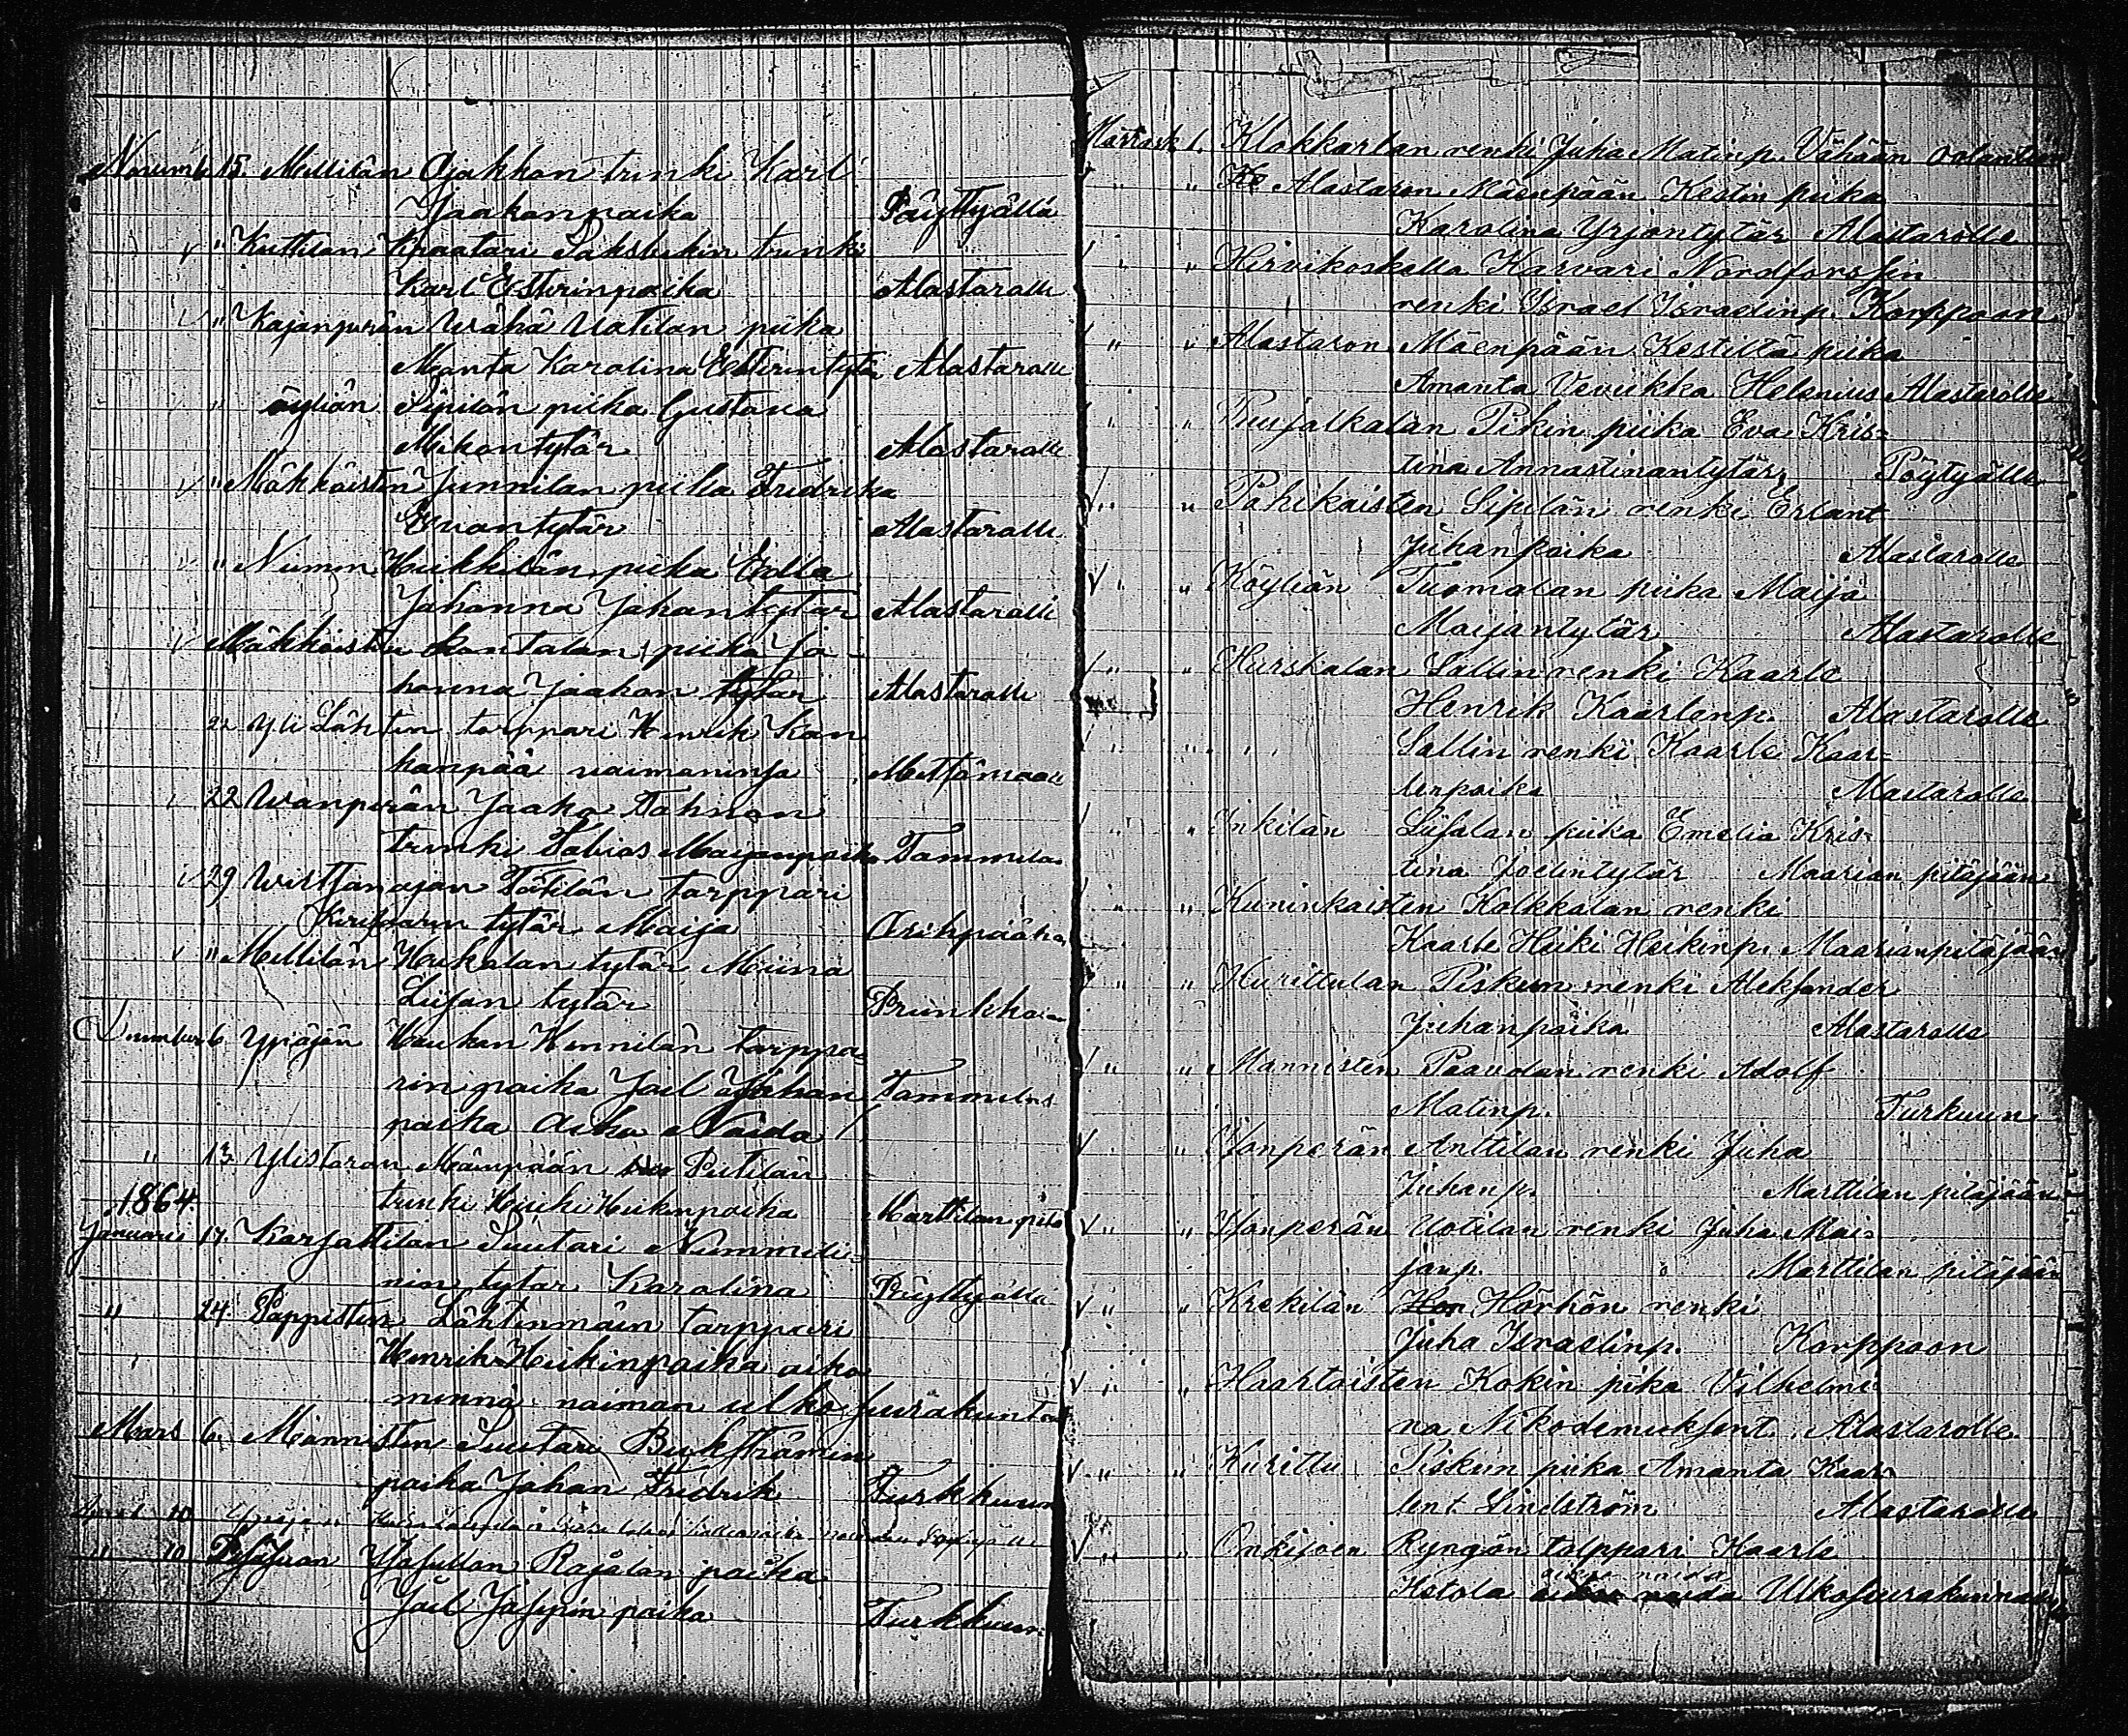 Novemb. 15. Mellilän Ajakkan trinki Karl
Jaakonpaika Pöyttyällä
" Kuttilan Kraatari Saksbekin trinki
Karl Esterinpaika Alastaralle
" Kajanperän Wähä Uotilan piika
Manta Karolina Esterintytä Alastaralle
" öyliän Sipilän piika Gustava
Mikontytär Alastaralle
" Mäkköisten Junnilan piika Fredrika
Evantytär Alastaralle
" Niemen Heikkilän piika Edla
Johanna Johantytär Alastaralle
Mäkköisten Kontalan piika Jo
hanna Jaakon tytär Alastaralle
22 Yli Lähten torppari Henrik Kan
kanpää vaimoninsa Mettämaalle
22 Wanperän Jaako Tahnen
trinki Tobias Maijanpaika Tammelas
29 Wirttanojan Tätilän Tarppari
tytär Maija Orihpäähä
" Mellilän Heikolan tytär Miina
Liisan tytär Prunkka
December 6 Ypäjän Haukan Hennilän tarppa=
rin paika Joel Johan Tammelas
paika Aika Naida
" 13 Ylistaron Mäenpään Pietilän
trinki Heiki Heikinpaika Marttilan pitä
1864.
Januari 17. Karjattilan Suutari Nummeli=
nin tytär Karolina Pöyttyälle
" 24 Pappisten Lähtinmäin tarppari
Henrik Heikinpaika aiko
mennä naiman ulko seurakuntaa
Mars 6 Männisten Suutari Bukströmin
paika Johan Fredrik Turkkuun
10 Ypäjän
" 10 Wasullan Rajalan paika
Joel Josepin paika Turkkuun
Marrask 1. Klokkarlan renki Juha Matinp. Vähään
" " Alastaron Mäenpään Kestin piika
Karolina Yrjöntytär Alastarolle
" " Hirvikoskella Harvari Nordforssin
renki Israel Israelinp. Korppoon
" " Alastaron Mäenpään Kestiltä piika
Amanta Vevukka Helenius Alastarolle
" " Puujalkalan Pikin piika Eva Kris=
tina Annastinantytär Pöytyälle
" " Pahikaisten Sipilän renki Erlant
Juhanpoika Alastarolle
" " Köyliön Tuomolan piika Maija
Maijantytär Alastarolle
" " Hurskalan Sallin renki Kaarle
Henrik Kaarlenp. Alastarolle
" " " Sallin renki Kaarle Kaar=
lenpoika Alastarolle
" " Inkilän Liisalan piika Emelia Kris=
tina Joelintytär Maarian pitäjään
" " Kuninkaisten Kolkkalan renki
Kaarle Heiki Heikinp. Maarianpitäjään
" " Kurittulan Piskun renki Aleksander
Juhanpoika Alastarolle
" " Mannisten Paavolan renki Adolf
Matinp. Turkuun
" " Yonperän Anttilan renki Juha
Juhanp. Marttilan pitäjään
" " Yonperän Uotilan renki Juha Mai=
janp. Marttilan pitäjään
" " Krekilän Hörhön renki
Juha Israelinp. Korppoon
" " Haartoisten Kokin piika Vilhelmi
na Nikodemuksent. Alastarolle
" " Kurittu Piskun piika Amanta Kaar=
lent. Lindström Alastarolle
" " Onkijoen Ryngön talppari Kaarle
Hetola aikoo naida Ulkoseurakunnalle